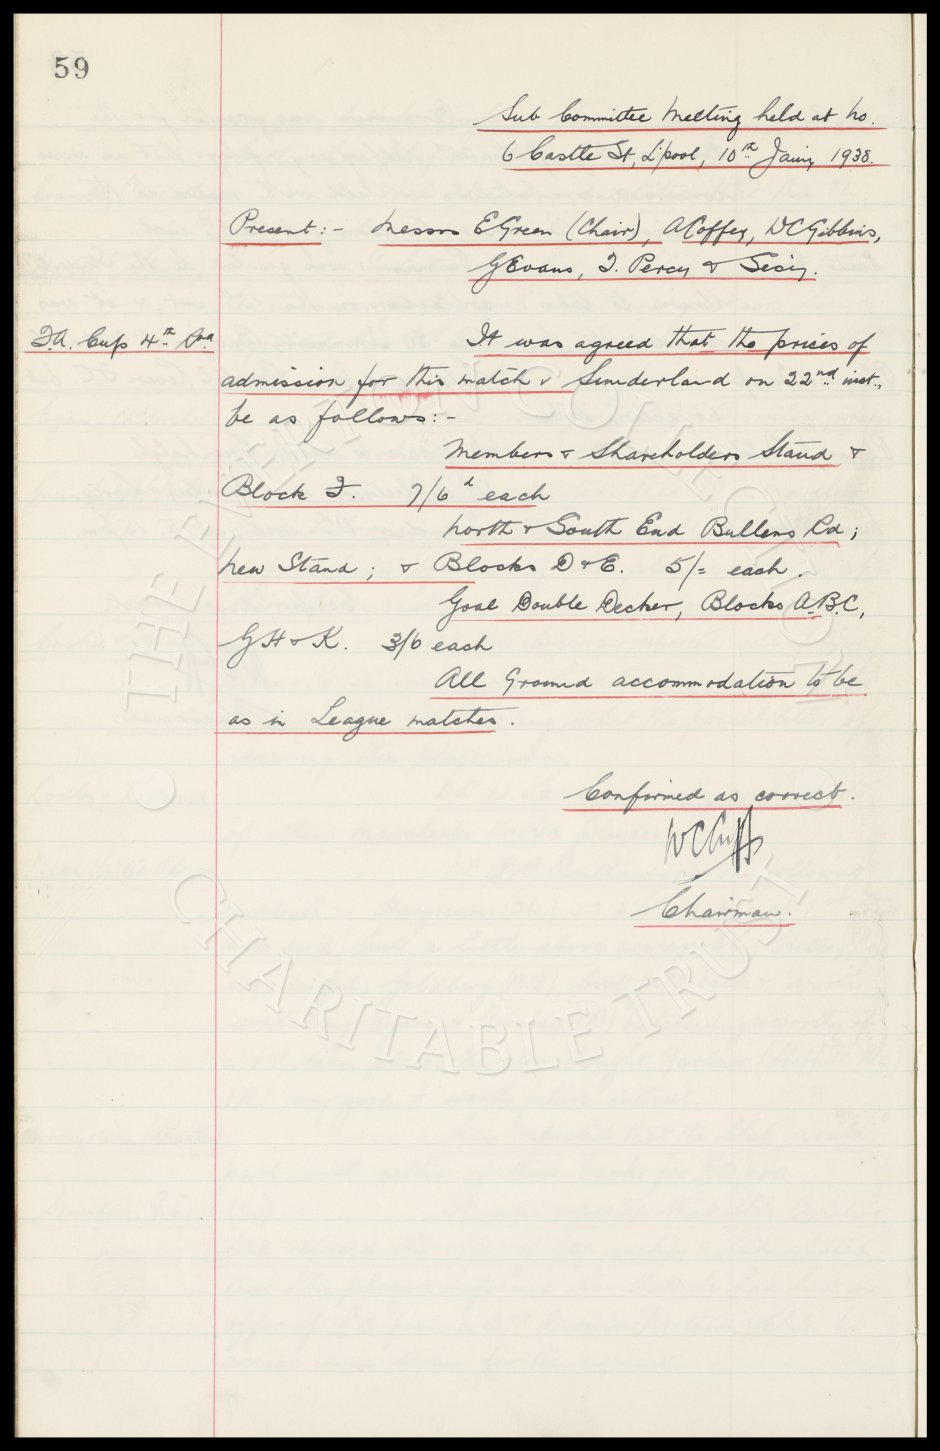 59
Sub Committee Meeting held at No.
6 Castle St, L'pool, 10th Jany 1938.
Present:- Messrs E Green (Chair), A Coffey, W C Gibbins,
G Evans, T. Percy & Secy.
F.A. Cup 4th Rd It was agreed that the prices of
admission for this match v Sunderland on 22nd inst.,
be as follows:-
Members & Shareholders Stand &
Block F. 7/6d each
North & South End Bullens Rd;
New Stand; & Blocks D & E. 5/= each.
Goal Double Decker, Blocks A.B.C,
G H & K. 3/6 each
All Ground accommodation to be
as in League matches.
Confirmed as correct.
W C Cuff
Chairman.
THE EVERTON COLLECTION
CHARITABLE TRUST